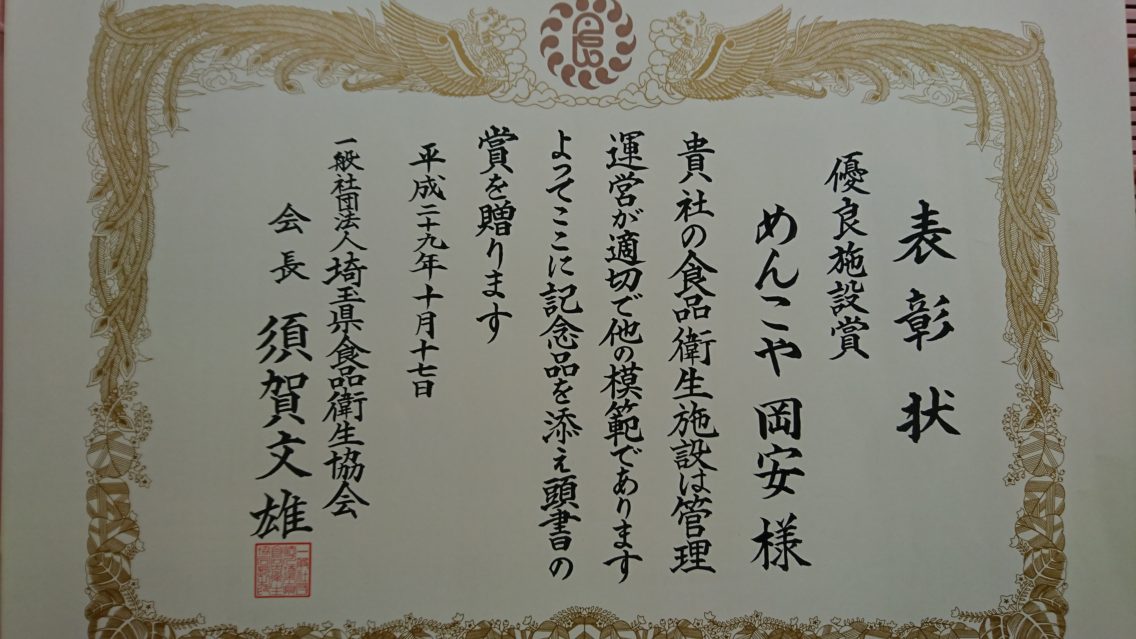 表彰状
優良施設賞
めんこや 岡安 様
貴社の食品衛生施設は管理
運営が適切で他の模範であります
よってここに記念品を添え頭書の
賞を贈ります
平成二十九年十月十七日
一般社団法人埼玉県食品衛生協会
会長 須賀文雄